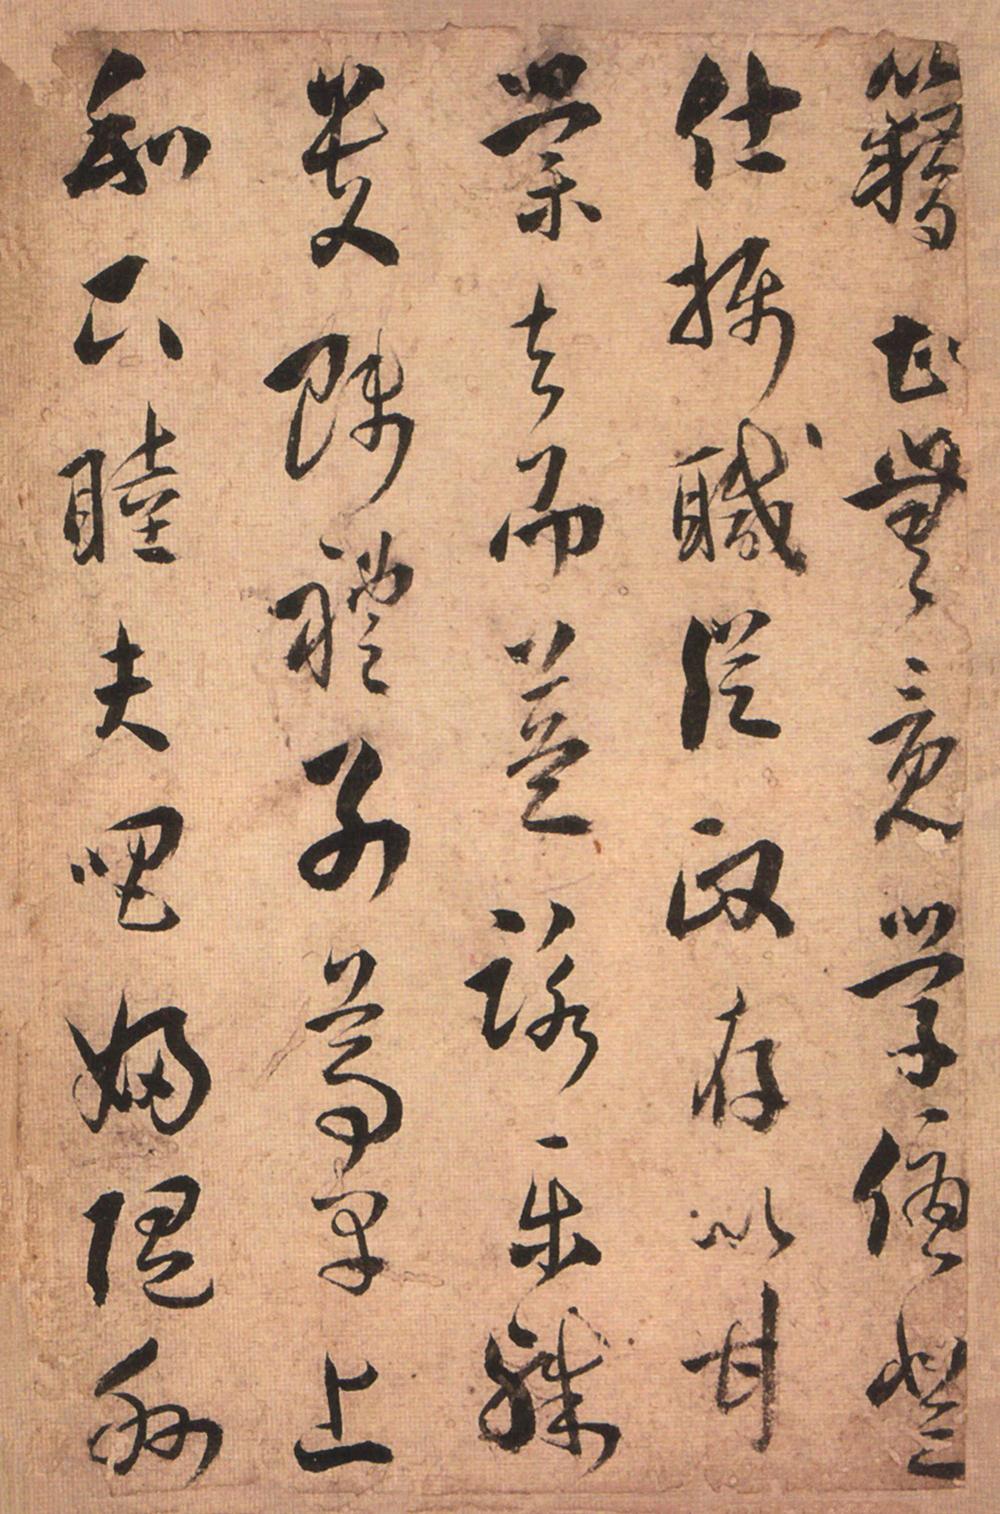 籍甚無竟學優登
仕攝職從政存以甘
棠去而益詠樂殊
貴賤禮別尊卑上
和下睦夫唱婦隨外